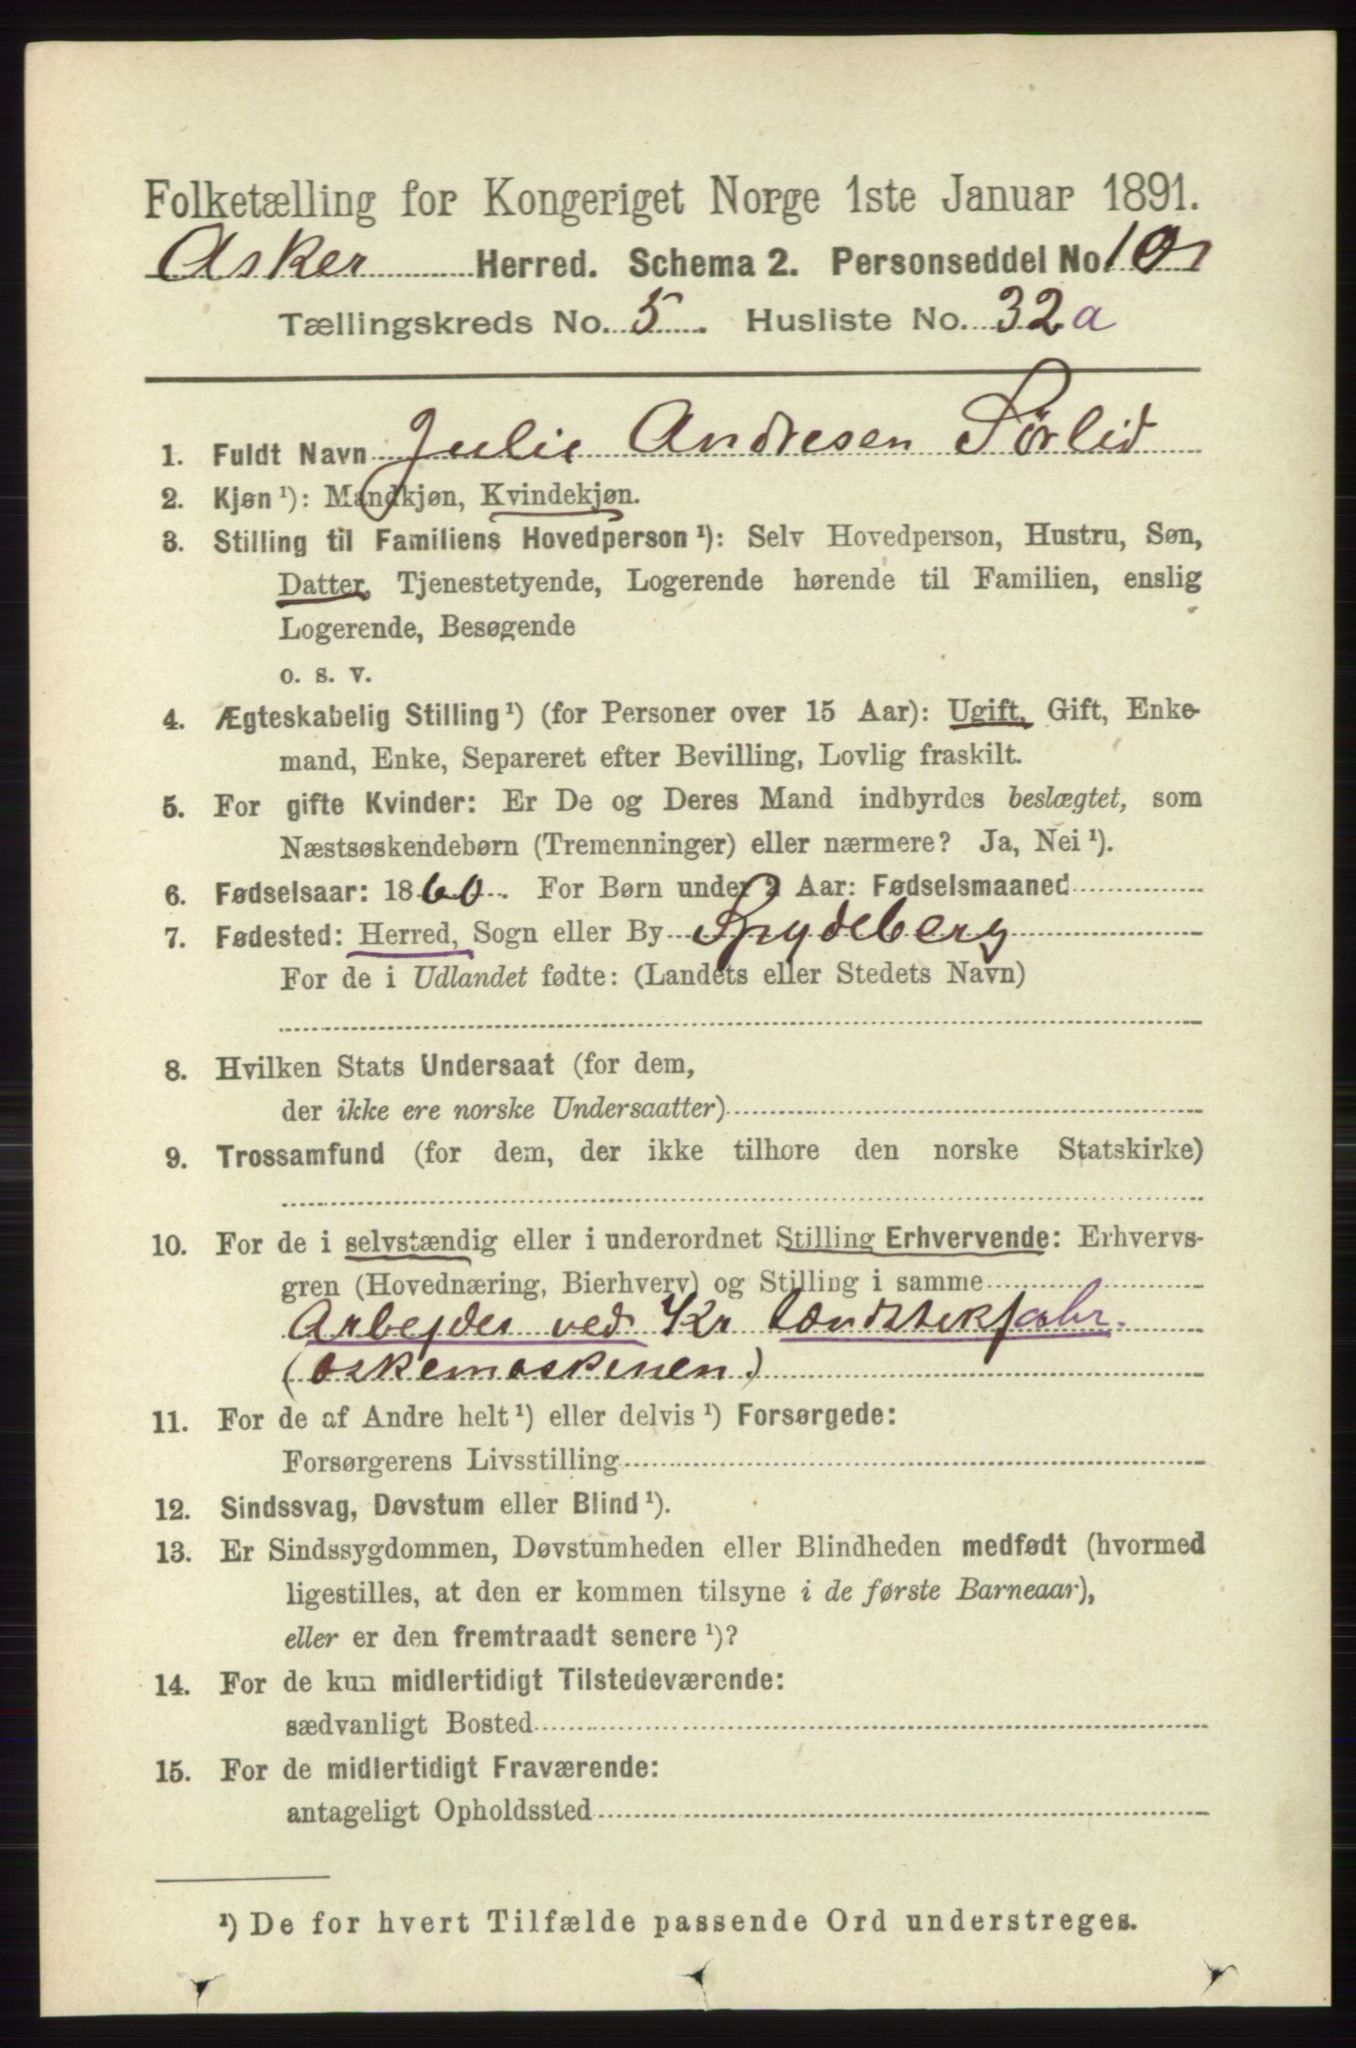 Folketælling for Kongeriget Norge 1ste Januar 1891.
Asker Herred. Schema 2. Personseddel No 10
Tællingskreds No. 5. Husliste No. 32 a
1. Fuldt Navn Julie Andresen Sørlid
2. Kjøn ¹): Mandkjøn, Kvindekjøn.
3. Stilling til Familiens Hovedperson ¹): Selv Hovedperson, Hustru, Søn,
Datter, Tjenestetyende, Logerende hørende til Familien, enslig
Logerende, Besøgende
o. s. v.
4. Ægteskabelig Stilling ¹) (for Personer over 15 Aar): Ugift, Gift, Enke-
mand, Enke, Separeret efter Bevilling, Lovlig fraskilt.
5. For gifte Kvinder: Er De og Deres Mand indbyrdes beslægtet, som
Næstsøskendebørn (Tremenninger) eller nærmere? Ja, Nei ¹).
6. Fødselsaar: 1860. For Børn under 2 Aar: Fødselsmaaned
7. Fødested: Herred, Sogn eller By Spydeberg
For de i Udlandet fødte: (Landets eller Stedets Navn)
8. Hvilken Stats Undersaat (for dem,
der ikke ere norske Undersaatter)
9. Trossamfund (for dem, der ikke tilhore den norske Statskirke)
10. For de i selvstændig eller i underordnet Stilling Erhvervende: Erhvervs-
gren (Hovednæring, Bierhverv) og Stilling i samme
Arbejder ved tændstikfabr.
(æskemaskinen)
11. For de af Andre helt ¹) eller delvis ¹) Forsørgede:
Forsørgerens Livsstilling
12. Sindssvag, Døvstum eller Blind ¹).
13. Er Sindssygdommen, Døvstumheden eller Blindheden medfødt (hvormed
ligestilles, at den er kommen tilsyne i de første Barneaar),
eller er den fremtraadt senere ¹)?
14. For de kun midlertidigt Tilstedeværende:
sædvanligt Bosted
15. For de midlertidigt Fraværende:
antageligt Opholdssted
¹) De for hvert Tilfælde passende Ord understreges.